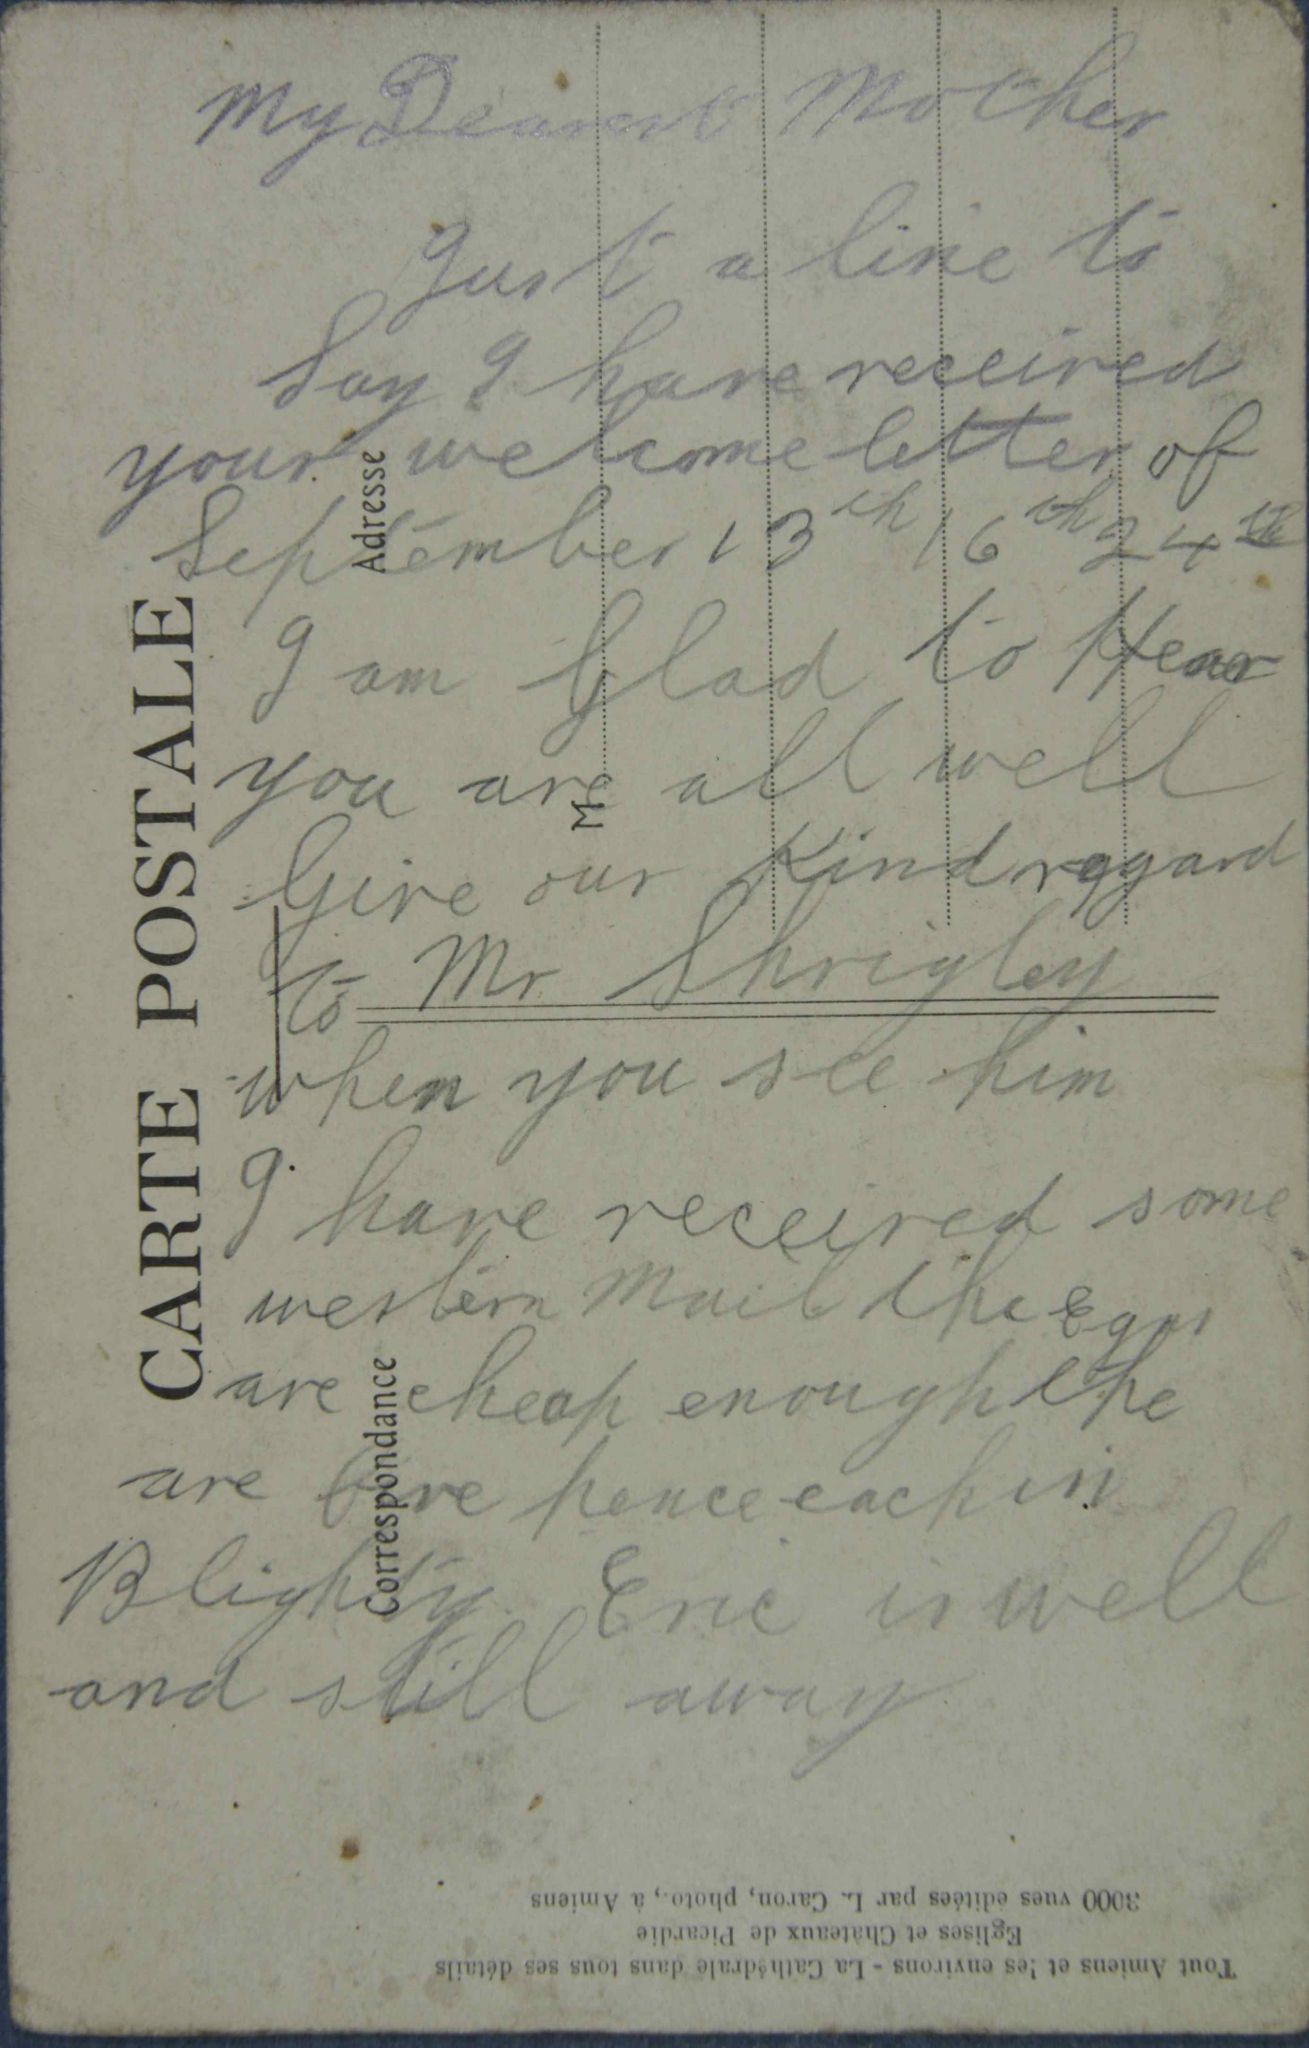 My Dearest Mother
Just a line to
Say I have received
your welcome letter of
September 13th 16th 24th
I am Glad to Hear
you are all well
Give our Kind regard
to Mr Shrigley
when you see him
I have received some
western Mail the Eggs
are cheap enough the
are five pence each in
Blighty. Eric is well
and still away
CARTE POSTALE
Adresse
M
Correspondance
Tout Amiens et les environs - La Cathédrale dans tous ses détails
Eglises et Châteaux de Picardie
3000 vues éditées par L. Caron, photo., à Amiens